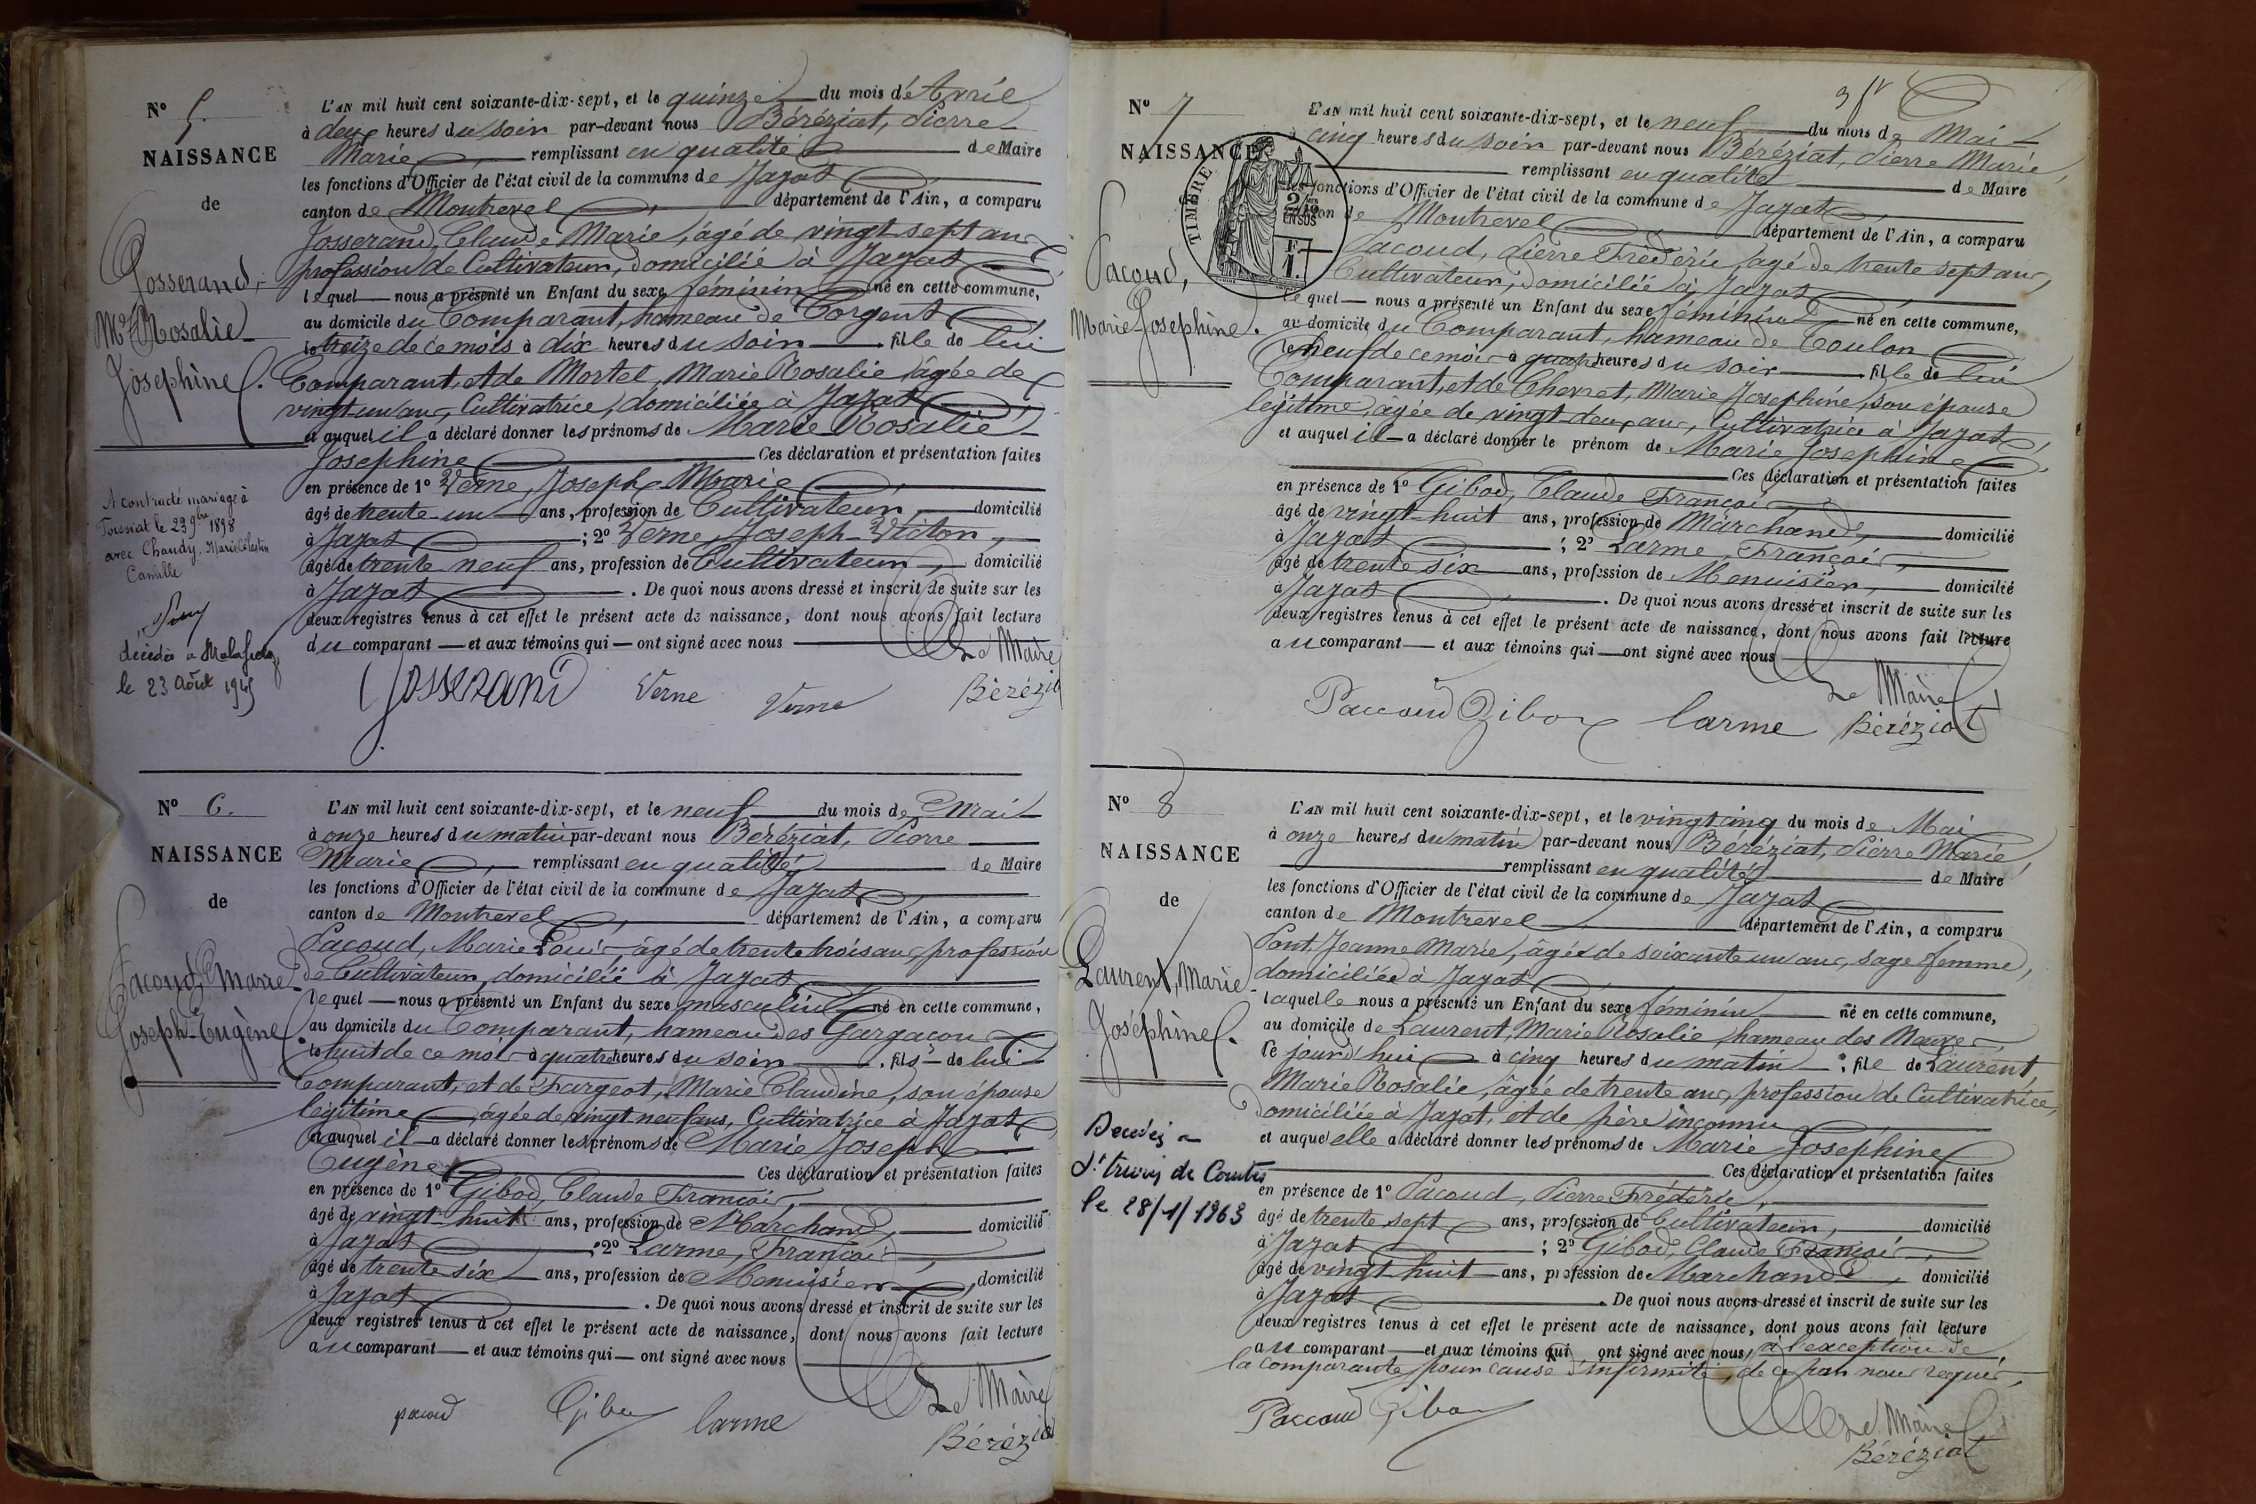 N° 5.
NAISSANCE
de
Josserand,
Mie Rosalie
Joséphine.
A contracté mariage à
le 23 9bre 1898
avec Chaudy, Marie Célestin
Camille
décédée à
le 23 Août 1945
L'AN mil huit cent soixante-dix-sept, et le quinze du mois d'Avril
à deux heures du soir par-devant nous Béréziat, Pierre
Marie remplissant en qualité de Maire
les fonctions d'Officier de l'état civil de la commune de Jayat
canton de Montrevel département de l'Ain, a comparu
Josserand, Claude Marie, âgé de vingt sept ans
profession de Cultivateur, domicilié à Jayat
lequel nous a présenté un Enfant du sexe féminin né en cette commune,
au domicile du Comparant, hameau de Corgent
le treize de ce mois à dix heures du soir . fille de lui
Comparant, et de Mortel, Marie Rosalie âgée de
vingt un ans, Cultivatrice, domiciliée à Jayat
et auquel il a déclaré donner les prénoms de Marie Rosalie
Joséphine Ces déclaration et présentation faites
en présence de 1° Verne, Joseph Marie
âgé de trente-un ans, profession de Cultivateur, domicilié
à Jayat ; 2° Verne, Joseph-Victor,
âgé de trente neuf ans, profession de Cultivateur, domicilié
à Jayat . De quoi nous avons dressé et inscrit de suite sur les
deux registres tenus à cet effet le présent acte de naissance, dont nous avons fait lecture
du comparant et aux témoins qui ont signé avec nous
Le Maire
Josserand Verne Verne Béréziat
N° 6.
NAISSANCE
de
Pacoud, Marie
Joseph-Eugène
L'AN mil huit cent soixante-dix-sept, et le neuf du mois de Mai
à onze heures du matin par-devant nous Béréziat, Pierre
Marie remplissant en qualité de Maire
les fonctions d'Officier de l'état civil de la commune de Jayat
canton de Montrevel département de l'Ain, a comparu
Pacoud, Marie Louis, âgé de trente trois ans, profession
de Cultivateur, domicilié à Jayat
lequel nous a présenté un Enfant du sexe masculin né en cette commune,
au domicile du Comparant, hameau des Gargaçon
le huit de ce mois à quatre heures du soir . fils de lui
Comparant, et de Fargeot, Marie Claudine, son épouse
légitime, âgée de vingt neuf ans, Cultivatrice à Jayat
et auquel il a déclaré donner les prénoms de Marie Joseph
Eugène Ces déclaration et présentation faites
en présence de 1° Gibod, Claude François
âgé de vingt-huit ans, profession de Marchand, domicilié
à Jayat ; 2° Larme, François
âgé de trente six ans, profession de Menuisier, domicilié
à Jayat . De quoi nous avons dressé et inscrit de suite sur les
deux registres tenus à cet effet le présent acte de naissance, dont nous avons fait lecture
au comparant et aux témoins qui ont signé avec nous
Le Maire
pacoud Gibod larme Béréziat
N° 7
NAISSANCE
Pacoud,
Marie Joséphine.
TIMBRE
2/10 EN SUS
F 1.
L'AN mil huit cent soixante-dix-sept, et le neuf du mois de Mai
à cinq heures du soir par-devant nous Béréziat, Pierre Marie,
remplissant en qualité de Maire
les fonctions d'Officier de l'état civil de la commune de Jayat
canton de Montrevel département de l'Ain, a comparu
Pacoud, Pierre Frédéric, âgé de trente sept ans,
Cultivateur, domicilié à Jayat
lequel nous a présenté un Enfant du sexe féminin né en cette commune,
au domicile du Comparant, hameau de Coulon
le neuf de ce mois à quatre heures du soir . fille de lui
Comparant, et de Chevret, Marie Joséphine, son épouse
légitime, âgée de vingt-deux ans, Cultivatrice à Jayat,
et auquel il a déclaré donner le prénom de Marie Joséphine
Ces déclaration et présentation faites
en présence de 1° Gibod, Claude François
âgé de vingt-huit ans, profession de Marchand, domicilié
à Jayat ; 2° Larme, François,
âgé de trente six ans, profession de Menuisier, domicilié
à Jayat . De quoi nous avons dressé et inscrit de suite sur les
deux registres tenus à cet effet le présent acte de naissance, dont nous avons fait lecture
au comparant et aux témoins qui ont signé avec nous
Le Maire
Paccoud Gibod larme Béréziat
N° 8
NAISSANCE
de
Laurent, Marie
Joséphine.
Décédée à
St trivier de Courtes
le 28/1/1963
L'AN mil huit cent soixante-dix-sept, et le vingt cinq du mois de Mai
à onze heures du matin par-devant nous Béréziat, Pierre Marie,
remplissant en qualité de Maire
les fonctions d'Officier de l'état civil de la commune de Jayat
canton de Montrevel département de l'Ain, a comparu
Pont, Jeanne Marie, âgée de soixante un ans, sage femme,
domiciliée à Jayat
laquelle nous a présenté un Enfant du sexe féminin né en cette commune,
au domicile de Laurent, Marie Rosalie, hameau des
le jourd'hui à cinq heures du matin ; fille de Laurent,
Marie Rosalie, âgée de trente ans, profession de Cultivatrice,
domiciliée à Jayat, et de père inconnu
et auquel elle a déclaré donner les prénoms de Marie Joséphine
Ces déclaration et présentation faites
en présence de 1° Pacoud, Pierre Frédéric,
âgé de trente sept ans, profession de Cultivateur, domicilié
à Jayat ; 2° Gibod, Claude François,
âgé de vingt huit ans, profession de Marchand, domicilié
à Jayat . De quoi nous avons dressé et inscrit de suite sur les
deux registres tenus à cet effet le présent acte de naissance, dont nous avons fait lecture
au comparant et aux témoins qui ont signé avec nous, à l'exception de
la comparante pour cause d'infirmité, de ce par nous requis,
Le Maire
Paccoud Gibod Béréziat